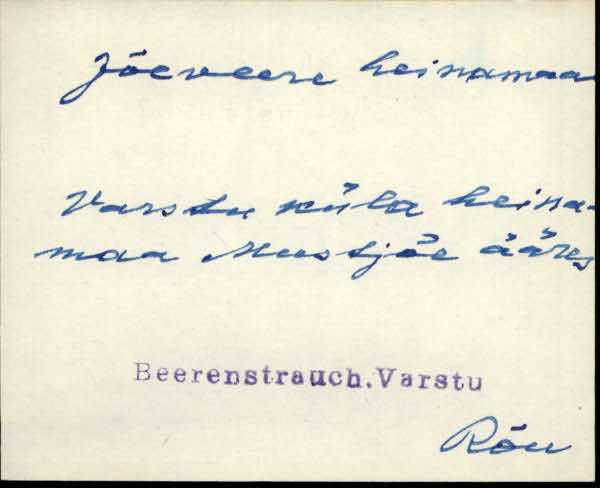 Jõeveere heinamaa
Varstu küla heina-
maa Mustjõe ääres
Beerenstrauch.Varstu
Rõu